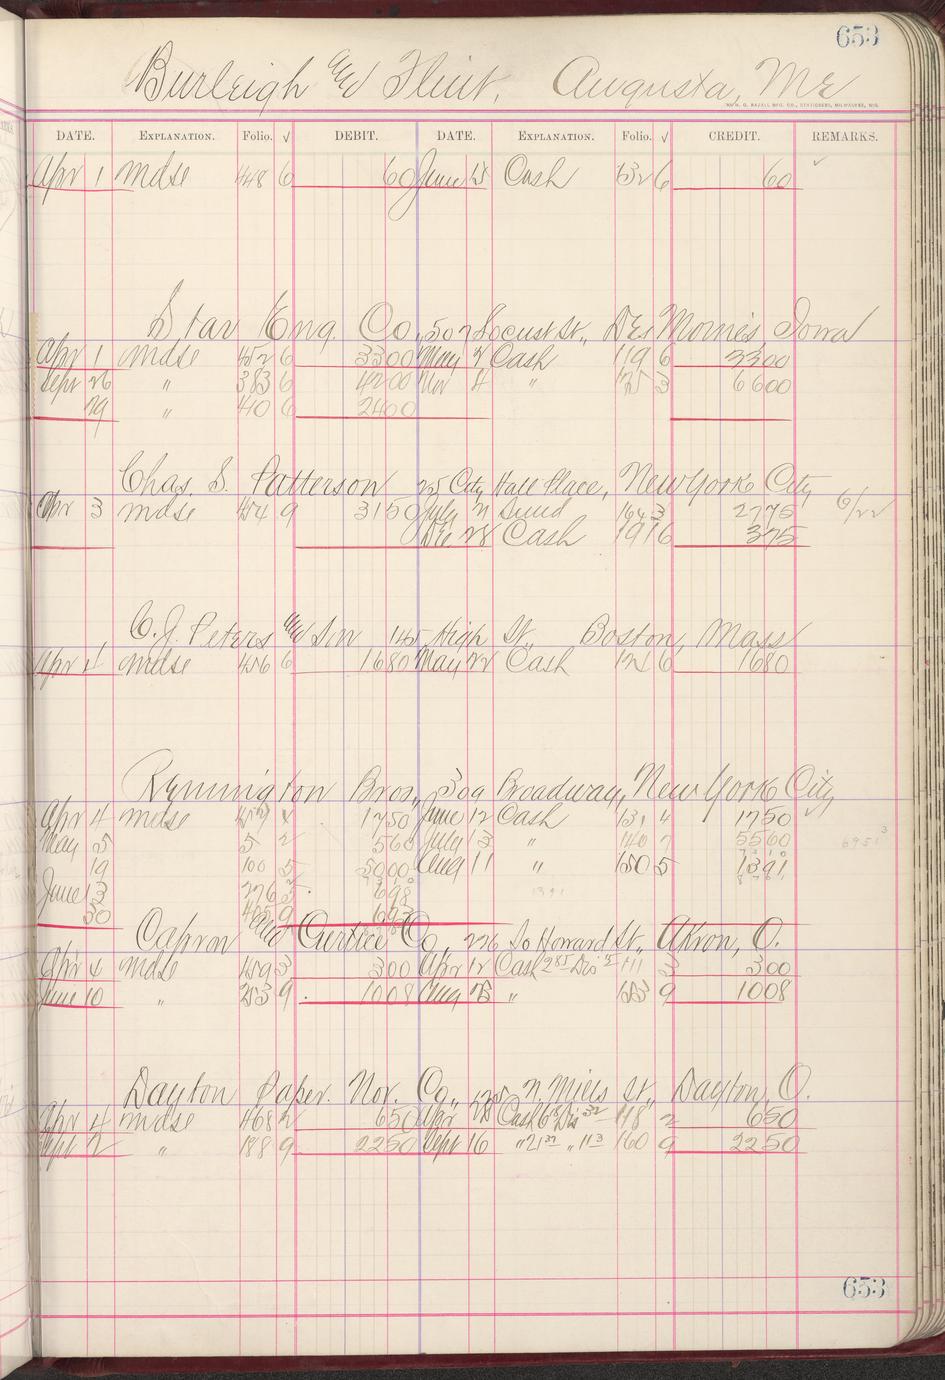 653
Burleigh and Flint, Augusta, Me
DATE. EXPLANATION. Folio. √ DEBIT. DATE. EXPLANATION. Folio. √ CREDIT. REMARKS.
Apr 1 Mdse 448 6 60 June 15 Cash 132 6 60 ✓
Star Eng. Co., 507 Locust St., Des Moines, Iowa
Apr 1 Mdse 452 6 3300 May 2 Cash 119 6 3300
Sept 26 " 383 6 4200 Nov 4 " 175 3 6600
29 " 410 6 2400
Chas. S. Patterson 25 City Hall Place, New York City
Apr 3 Mdse 454 9 3150 July 21 Sund 164 3 2775 6/22
Dec 28 Cash 191 6 375
C. J. Peters and Son 145 High St., Boston, Mass
Apr 4 Mdse 456 6 1680 May 22 Cash 126 6 1680
Remington Bros., 309 Broadway, New York City
Apr 4 Mdse 4 1750 June 12 Cash 131 4 1750
May 5 5 2 560 July 13 " 140 7 5560
19 100 5 5000 Aug 11 " 150 5 1391
June 13 276 5 698 1391
30 425 9 693
Capron and Curtice Co., 226 So Howard St., Akron, O.
Apr 4 Mdse 459 3 300 Apr 12 Cash 285 Dis 15 111 3 300
June 10 " 253 9 1008 Aug 25 " 153 9 1008
Dayton Paper. Nov. Co., N. Miels St., Dayton, O.
Apr 4 Mdse 468 2 650 Apr 28 Cash 618 Dis 32 118 2 650
Sept 2 " 188 9 2250 Sept 16 " 2137 " 113 160 9 2250
653